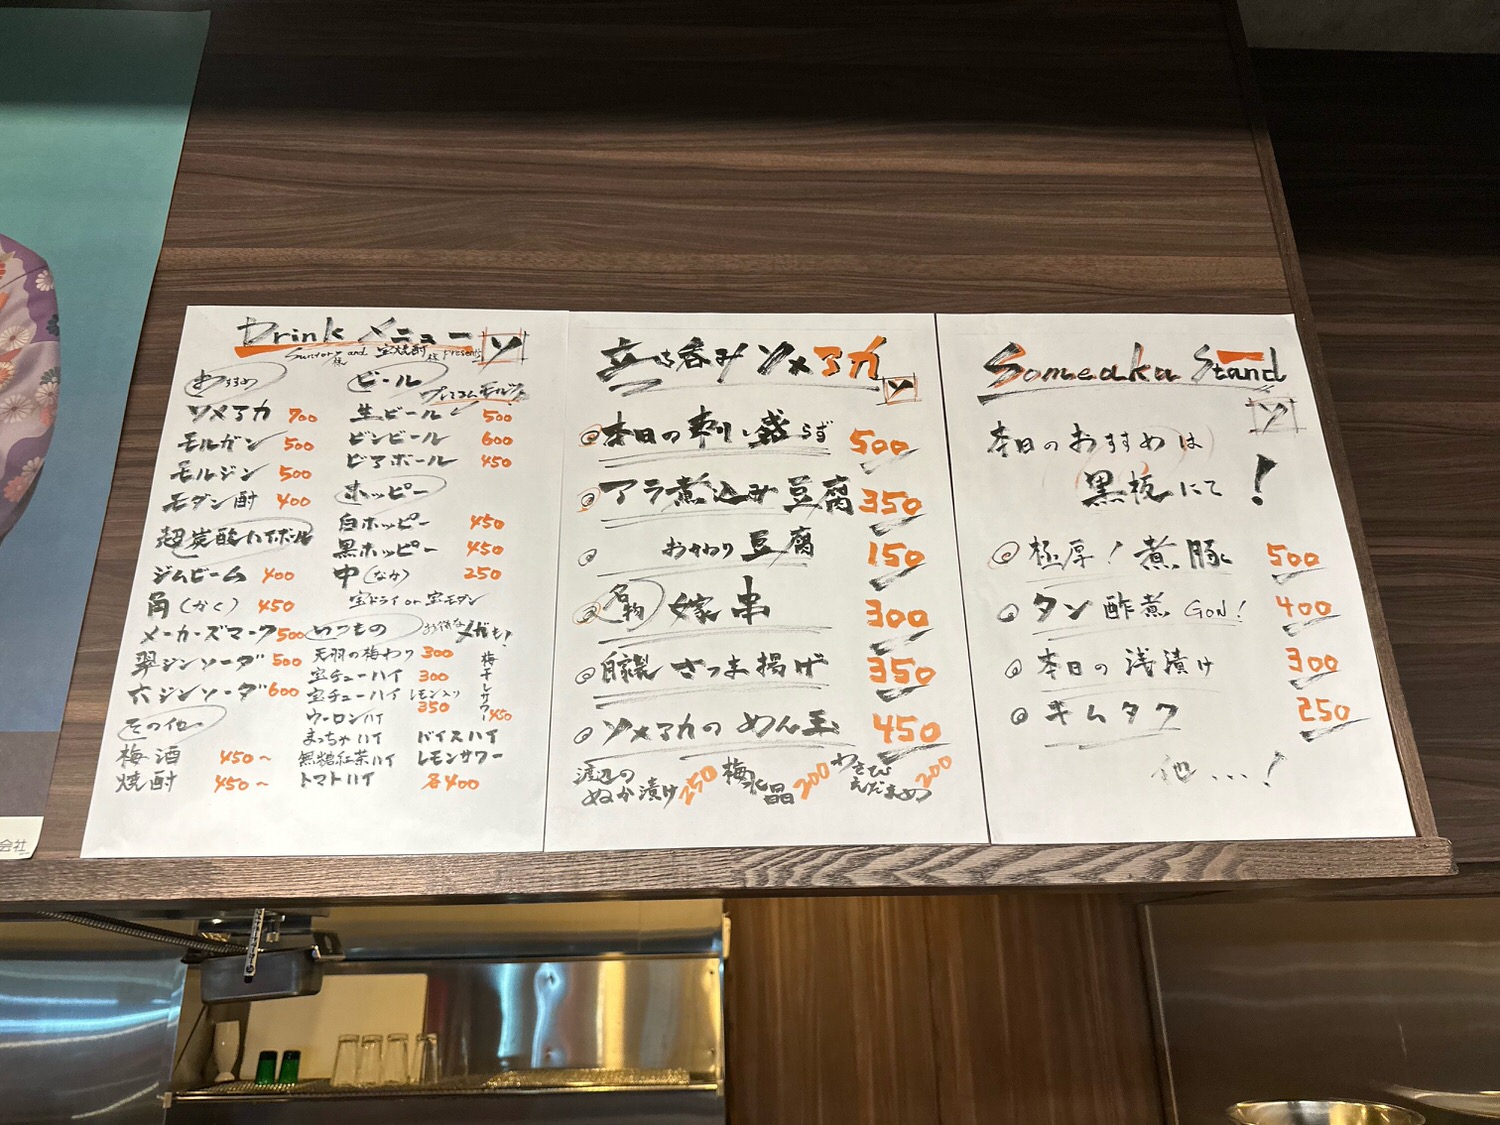 Drink メニュー
Suntory様 and 宝焼酎様 Presents
ソ
おすすめ
ソメアカ 700
モルガン 500
モルジン 500
モダン酎 400
超炭酸ハイボール
ジムビーム 400
角(かく) 450
メーカーズマーク 500
翠ジンソーダ 500
六ジンソーダ 600
その他
梅酒 450~
焼酎 450~
ビール
プレミアムモルツ
生ビール 500
ビンビール 600
ビアボール 450
ホッピー
白ホッピー 450
黒ホッピー 450
中(なか) 250
宝ドライ or 宝モダン
いつもの
お得なメガも!
天羽の梅わり 300
宝チューハイ 300
宝チューハイ レモン入り 350
梅干しサワー 450
ウーロンハイ
まっちゃハイ ドイスハイ
無糖紅茶ハイ レモンサワー
トマトハイ 各400
立ち呑み ソメアカ
ソ
本日の刺し盛らず 500
アラ煮込み豆腐 350
おかわり豆腐 150
名物 嫁串 300
自家製 さつま揚げ 350
ソメアカの めん玉 450
渡辺のぬか漬け 250
梅水晶 200
わさびえだまめ 200
Someaka Stand
ソ
本日のおすすめは
黒板にて!
極厚!煮豚 500
タン酢煮 GON! 400
本日の浅漬け 300
キムタク 250
他...!
会社